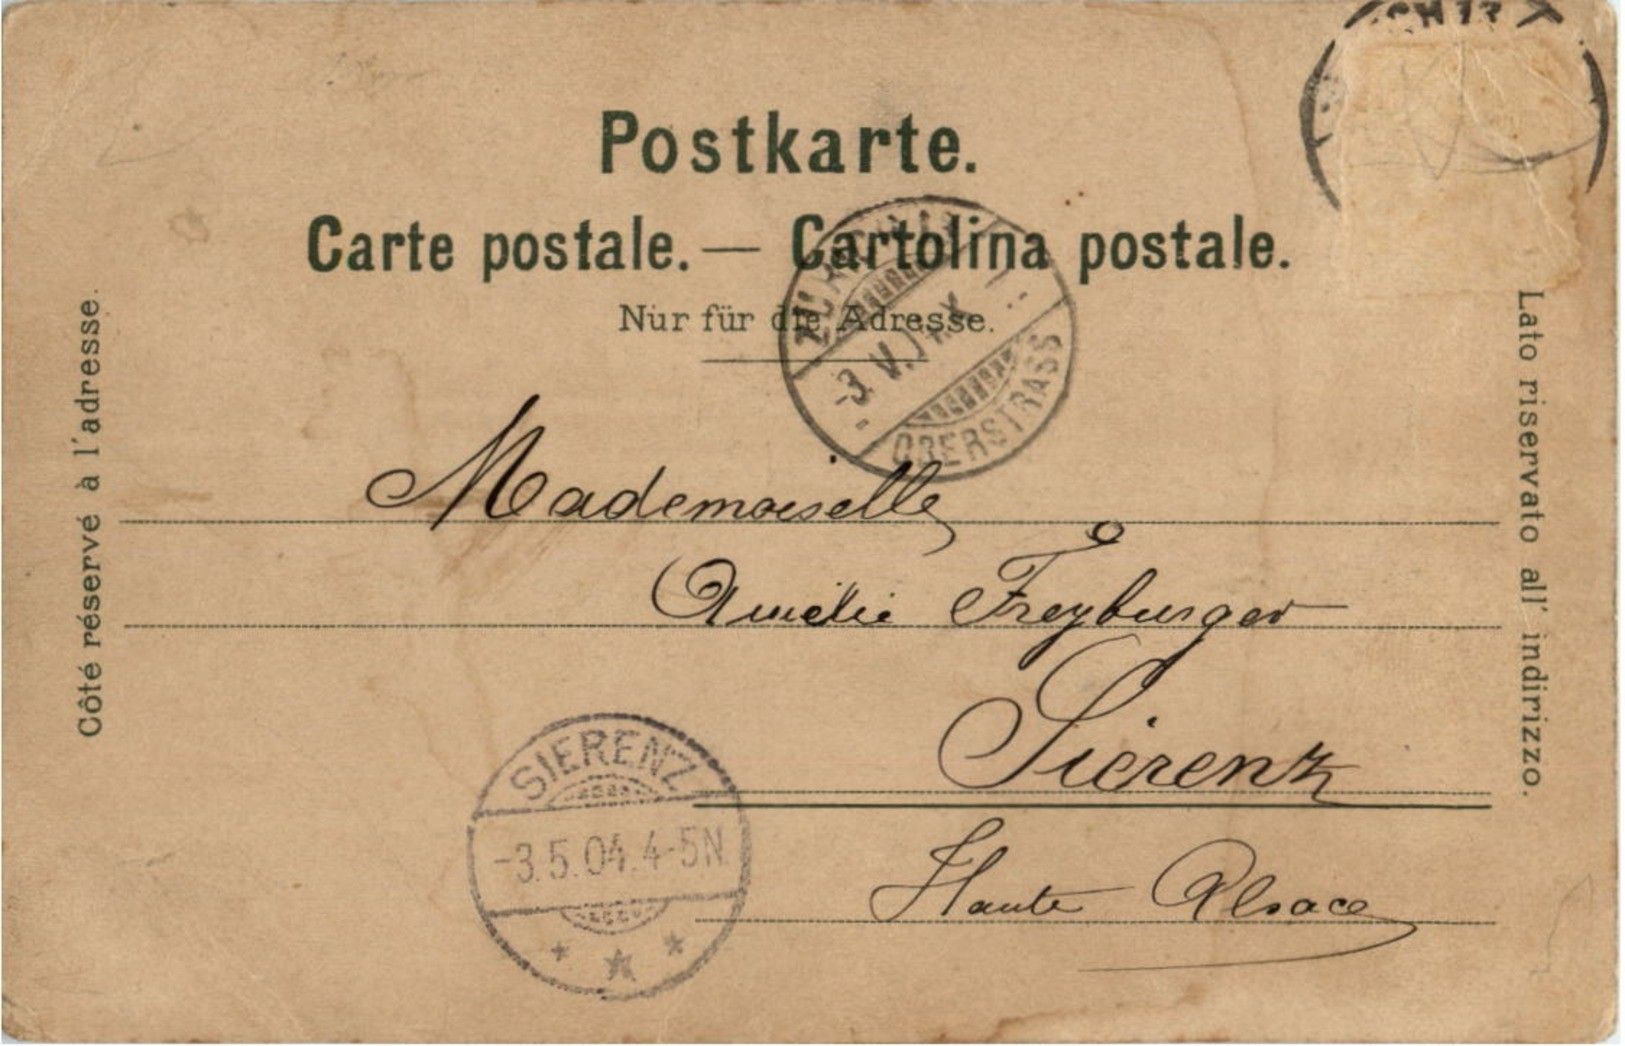 Postkarte.
Carte postale. — Cartolina postale.
Nur für die Adresse.
Côté réservé à l'adresse.
Lato riservato all' indirizzo.
-3. V.
OBERSTRASS
Mademoiselle
Amélie Freyburger
Sierenz
Haute Alsace
SIERENZ
-3.5.04.4-5N